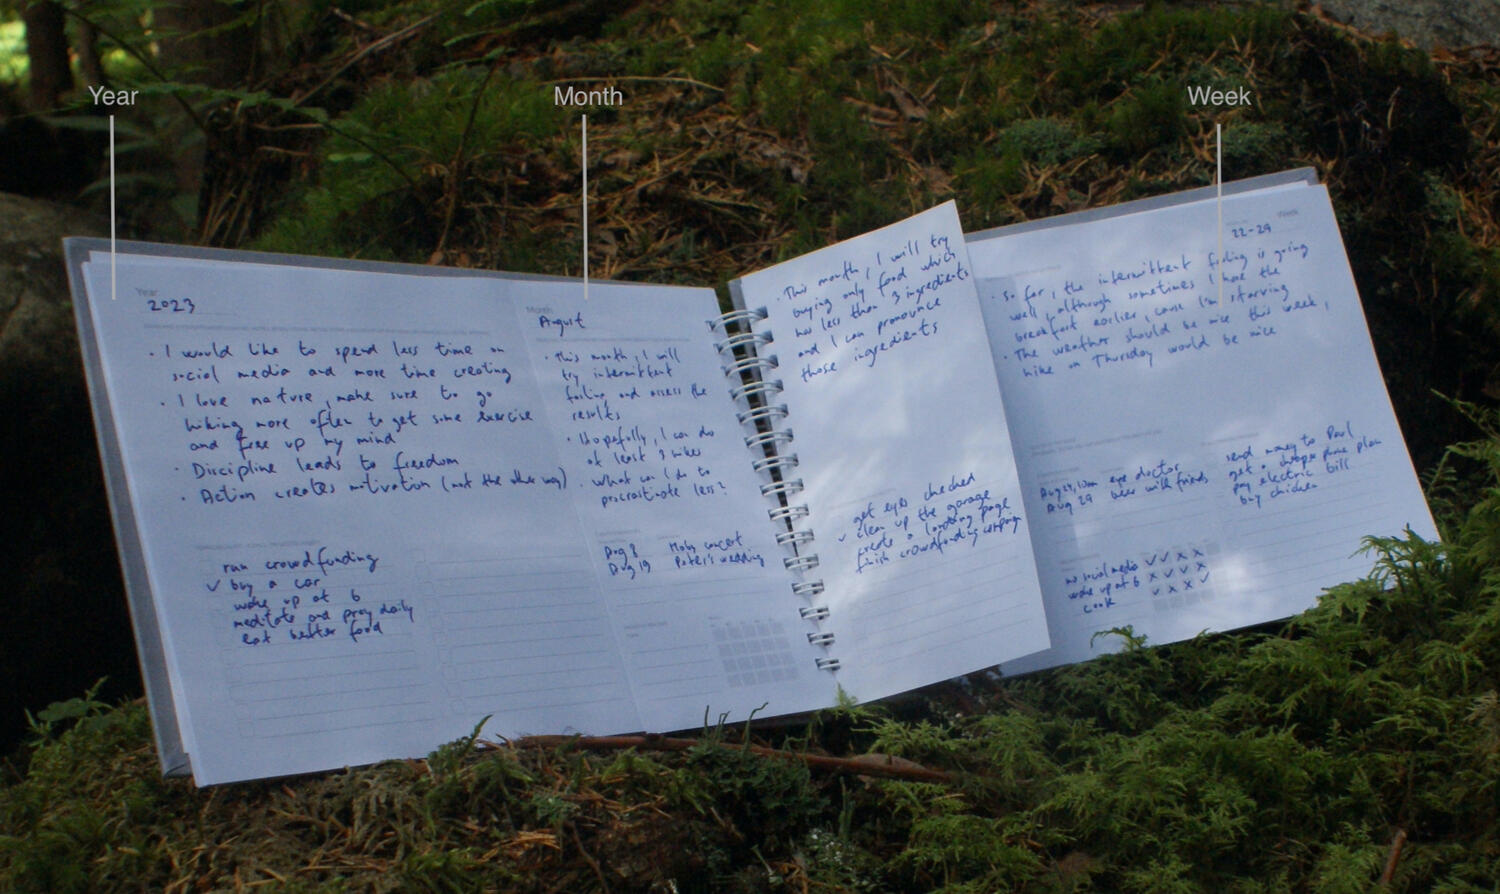 Year
Month
Week
Year
2023
· I would like to spend less time on
social media and more time creating
· I love nature, make sure to go
hiking more often to get some exercise
and free up my mind
· Discipline leads to freedom
· Action creates motivation (not the other way)
run crowdfunding
✓ buy a car
wake up at 6
meditate and pray daily
eat better food
Month
August
· This month, I will
try intermittent
fasting and assess the
results
· Hopefully, I can do
at least 3 hikes
· What can I do to
procrastinate less?
Aug 8 Moby concert
Aug 19 Peter's wedding
· This month, I will try
buying only food which
has less than 3 ingredients
and I can pronounce
those ingredients
get eyes checked
✓ clean up the garage
create a landing page
finish crowdfunding campaign
Week
22-29
· So far, the intermittent fasting is going
well, although sometimes I have the
breakfast earlier, cause I'm starving
· The weather should be nice this week,
hike on Thursday would be nice
Aug 24, eye doctor
Aug 29 beer with friends
send money to Paul
get a cheaper phone plan
pay electric bill
buy chicken
no social media ✓ ✓ x x
wake up at 6 x ✓ ✓ x
cook ✓ x x ✓